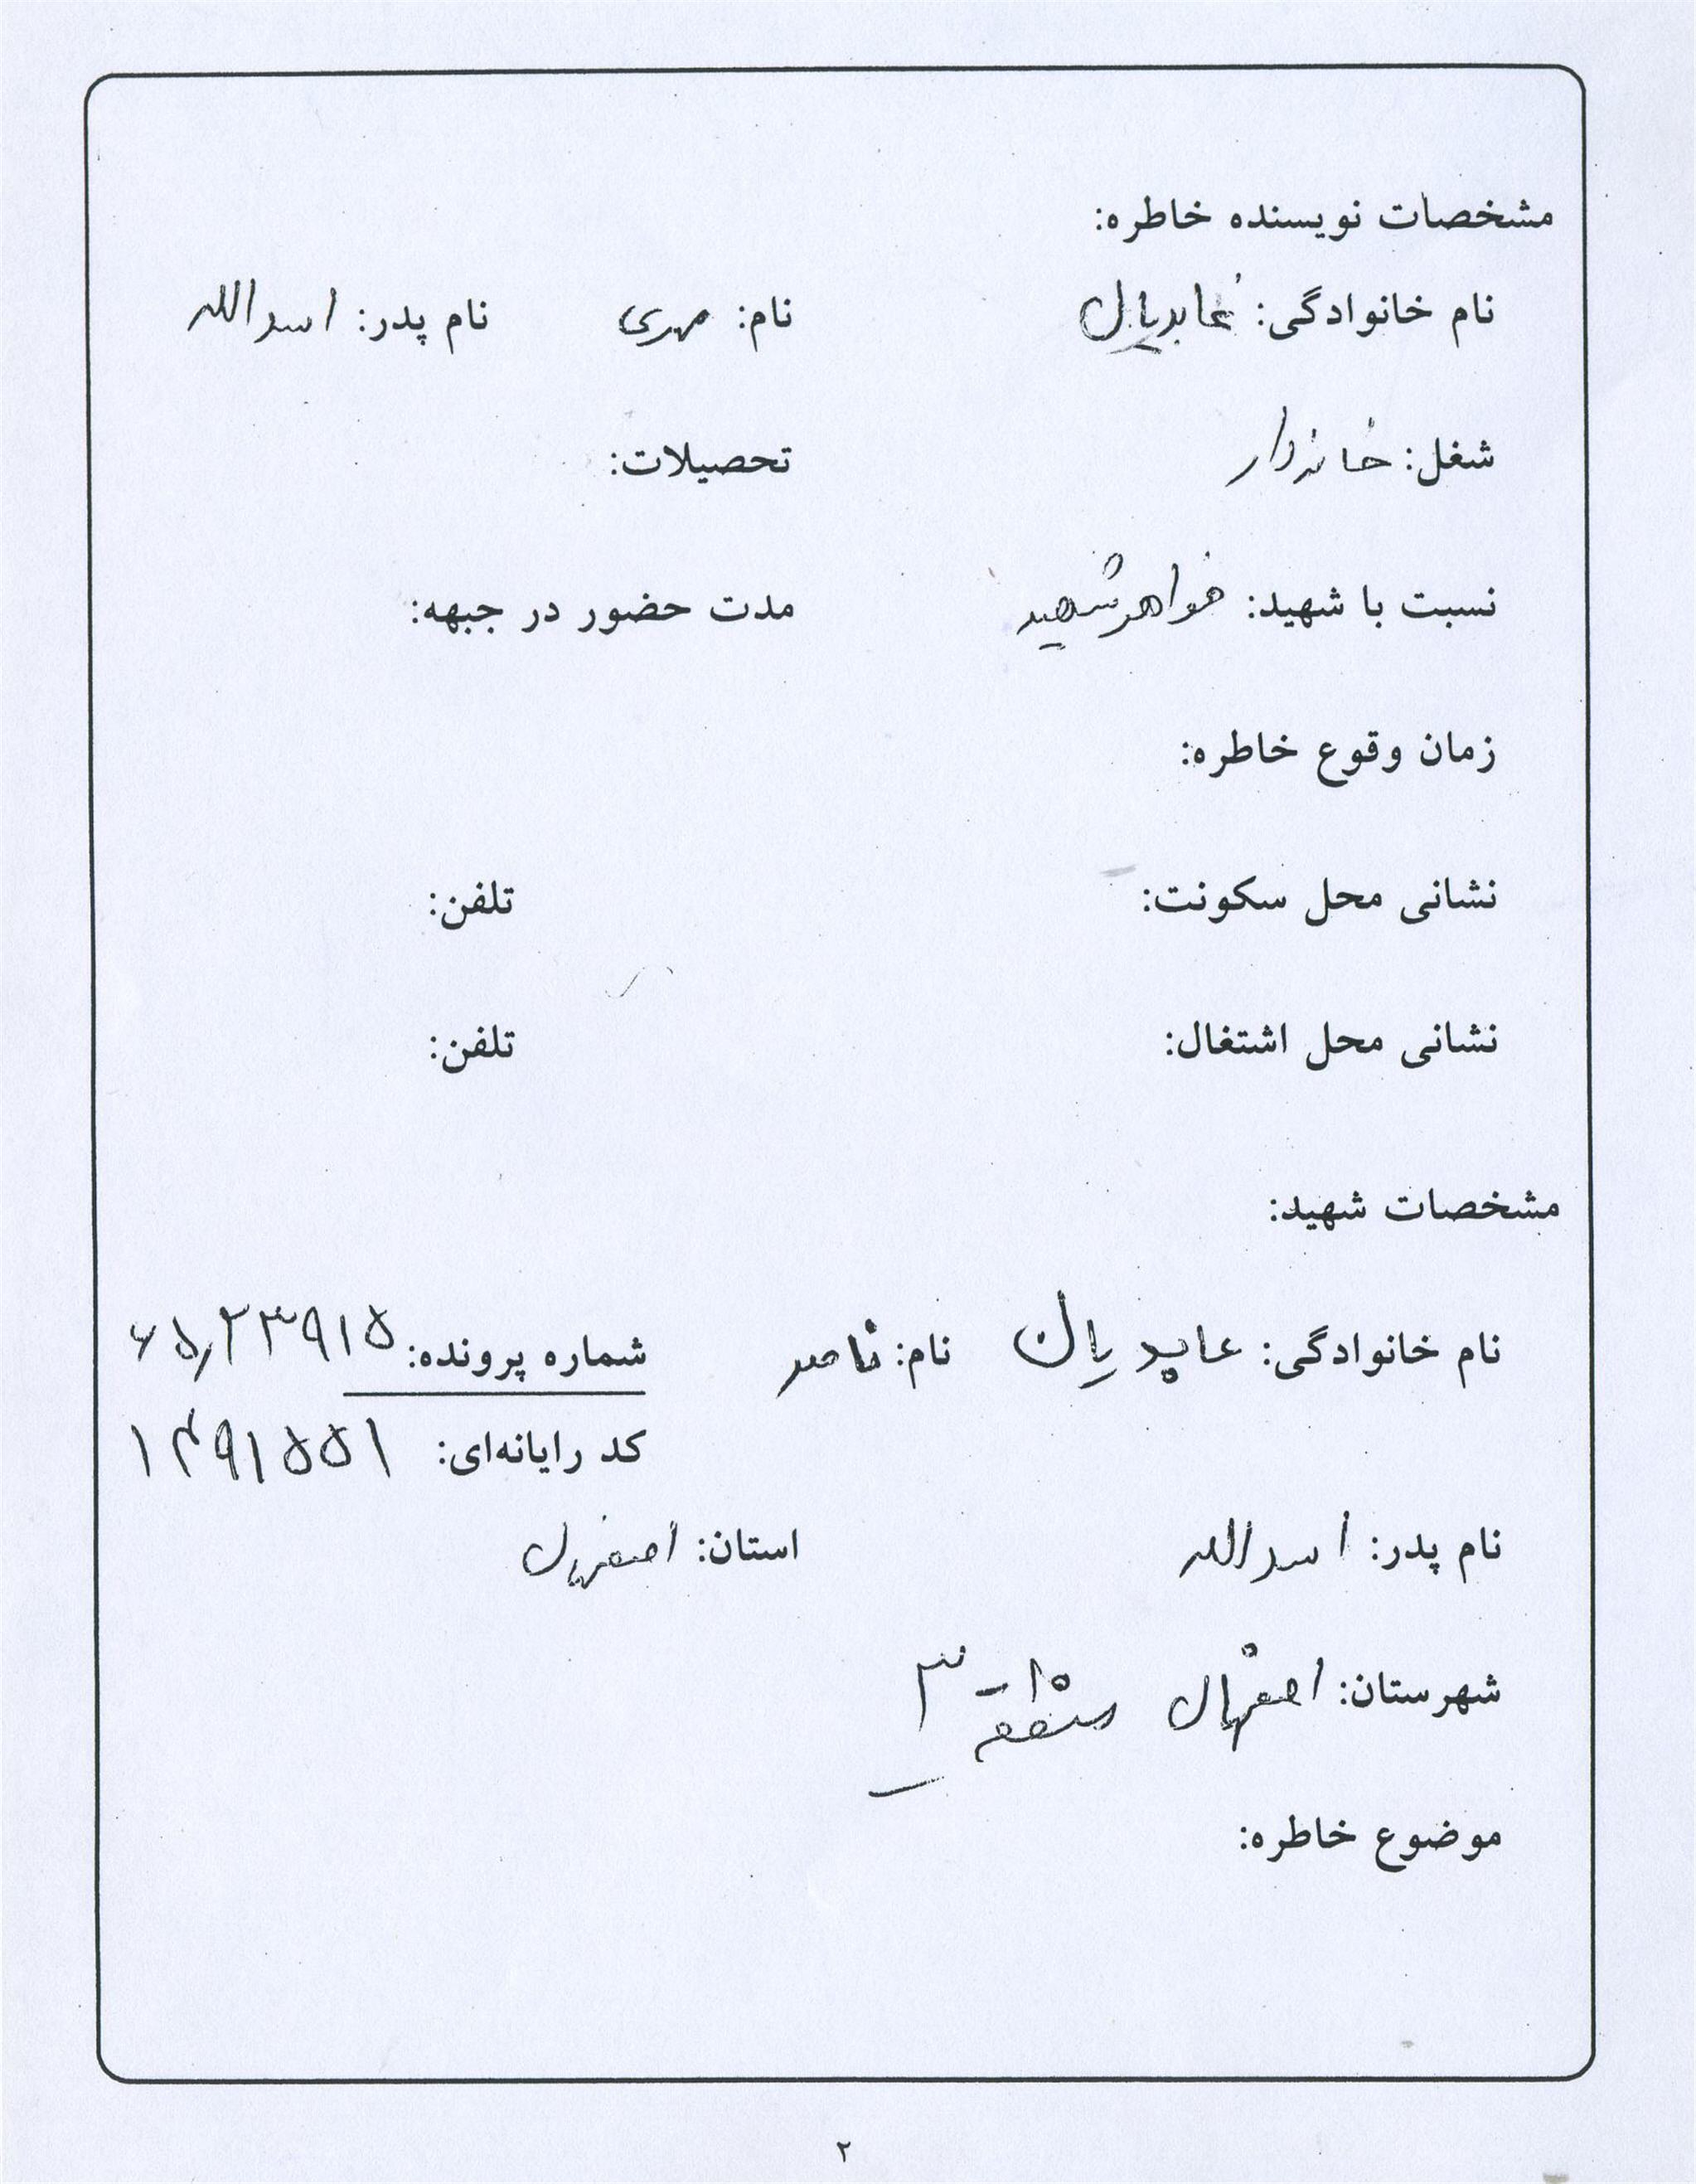 مشخصات نویسنده خاطره:
نام خانوادگی: عابدیان نام: مهری نام پدر: اسدالله
شغل: خانه‌دار تحصیلات:
نسبت با شهید: خواهر شهید مدت حضور در جبهه:
زمان وقوع خاطره:
نشانی محل سکونت: تلفن:
نشانی محل اشتغال: تلفن:
مشخصات شهید:
نام خانوادگی: عابدیان نام: ناصر شماره پرونده: ۶۵٫۲۳۹۱۵
کد رایانه‌ای: ۱۴۹۱۵۵۱
نام پدر: اسدالله استان: اصفهان
شهرستان: اصفهان منطقه ۳
موضوع خاطره:
۲